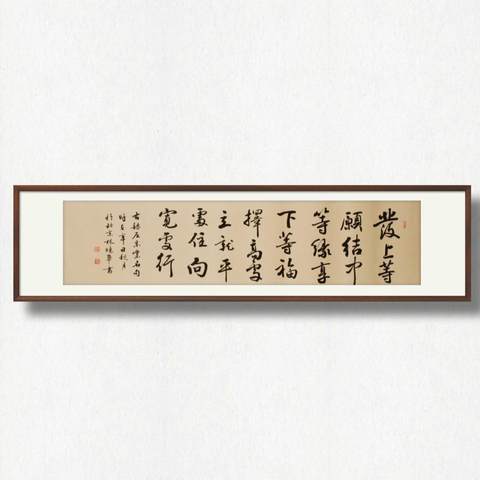 發上等
願結中
等緣享
下等福
擇高處
立就平
處住向
寬處行
右錄左宗棠名句
於北京
書